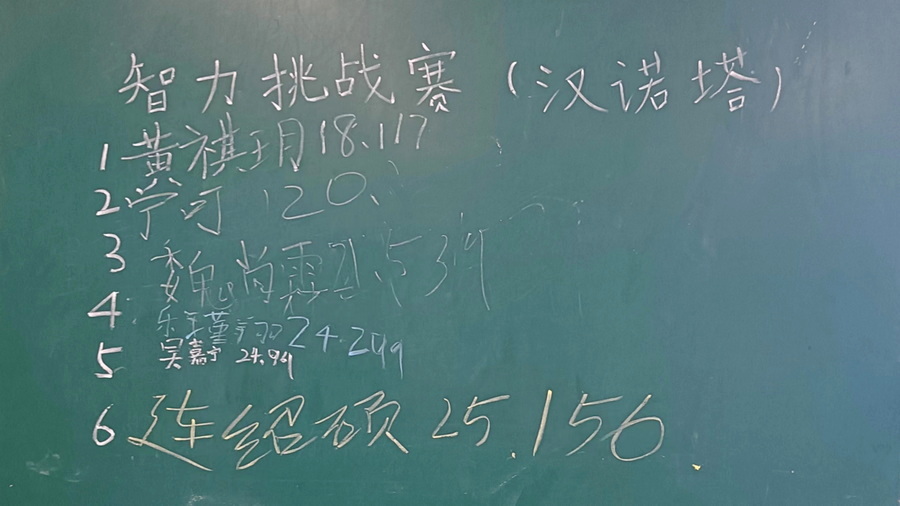 智力挑战赛（汉诺塔）
1 黄祺玥 18.117
2 宁可 120.
3 魏尚霖 21.539
4 乐瑾翔 24.299
5 吴嘉宁 24.94
6 连绍硕 25.156